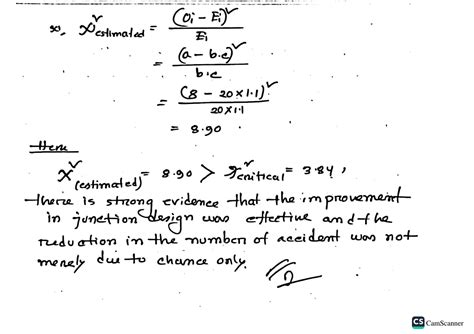 so, χ²estimated = (Oi - Ei)² / Ei
= (a - b.c)² / b.c
= (8 - 20×1.1)² / 20×1.1
= 8.90
Here
χ²(estimated) = 8.90 > χ²critical = 3.84,
there is strong evidence that the improvement
in junction design was effective and the
reduction in the number of accident was not
merely due to chance only.
CS CamScanner